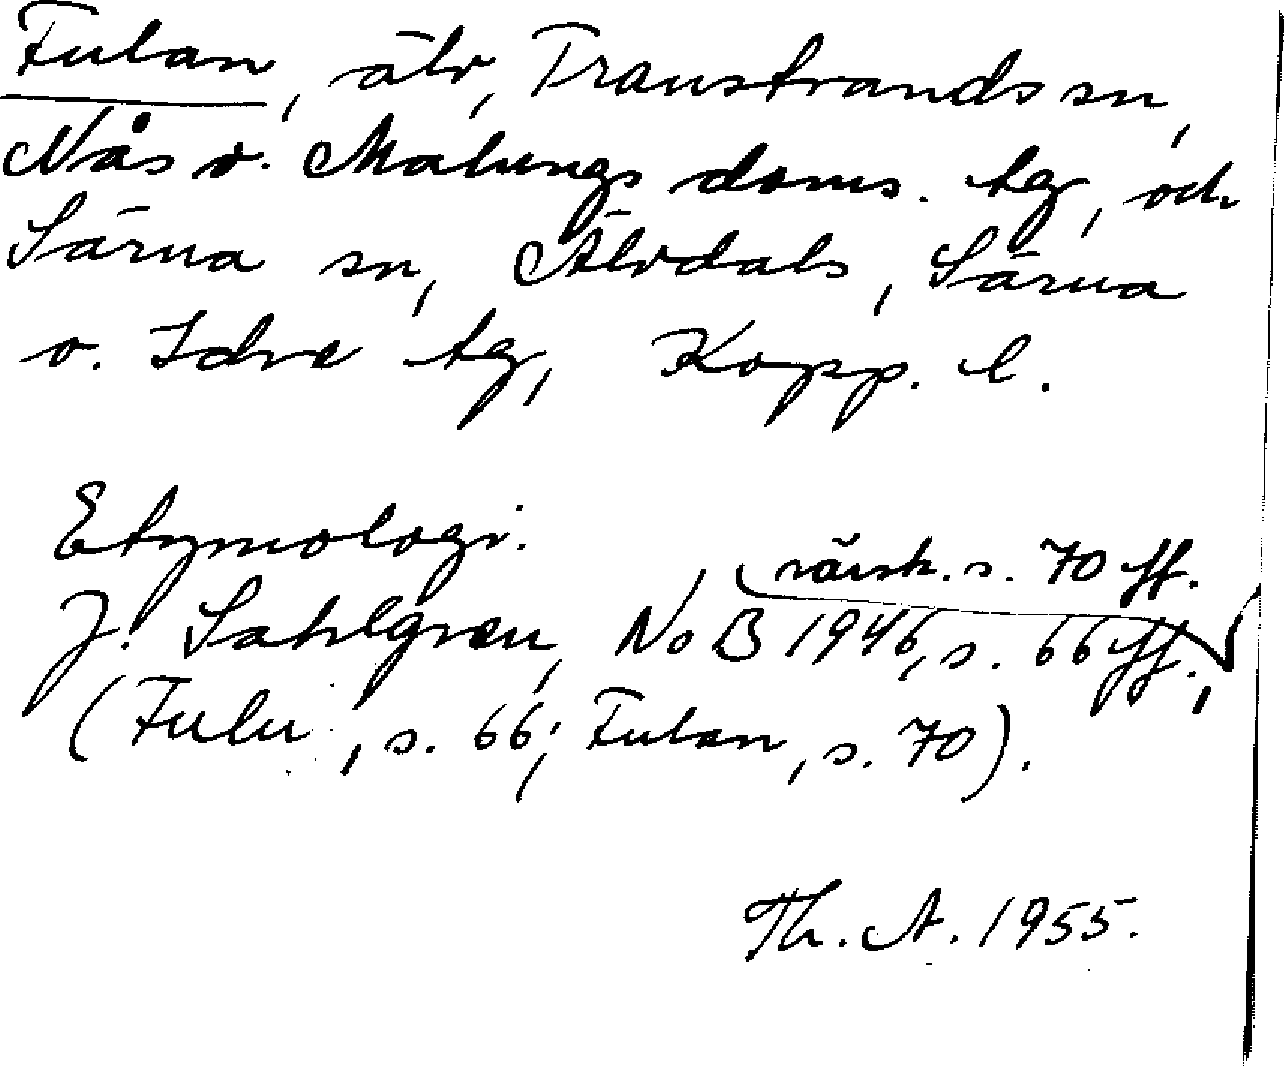 Fulan, älv, Transtrands sn,
Nås o. Malungs doms. tg, och
Särna sn, Älvdals, Särna
o. Idre tg, Kopp. l.
Etymologi.
särsk. s. 70 ff.
J. Sahlgren, NoB 1946, s. 66 ff.,
(Fulu, s. 66; Fulan, s. 70).
Th. A. 1955.